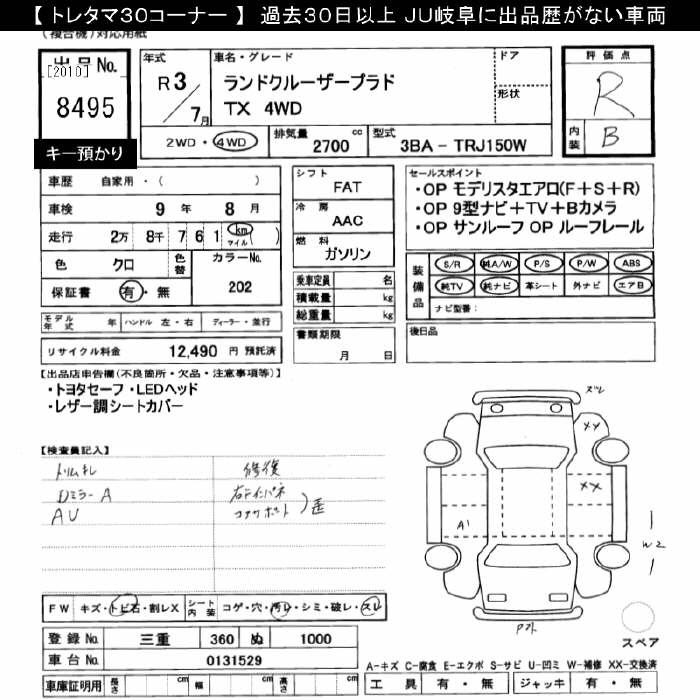 【 トレタマ30コーナー 】 過去30日以上 JU岐阜に出品歴がない車両
(複合機)対応用紙
出品No.
[2010]
8495
キー預かり
年式
R 3/7月
車名・グレード
ランドクルーザープラド
TX 4WD
ドア
形状
2WD・4WD
排気量
2700 cc
型式
3BA - TRJ150W
評価点
R
内装
B
車歴 自家用・( )
車検 9年 8月
走行 2万 8千 7 6 1 km マイル ( )
色 クロ
色替
カラーNo.
202
保証書 有・無
シフト
FAT
冷房
AAC
燃料
ガソリン
乗車定員 名
積載量 kg
総重量 kg
書類期限
月 日
セールスポイント
・OP モデリスタエアロ(F+S+R)
・OP 9型ナビ+TV+Bカメラ
・OP サンルーフ OP ルーフレール
装備品
S/R 純A/W P/S P/W ABS
純TV 純ナビ 革シート 外ナビ エアB
ナビ型番:
後日品
モデル年式 年 ハンドル 左・右 ディーラー・並行
リサイクル料金 12,490 円 預託済
【出品店申告欄(不良箇所・欠品・注意事項等)】
・トヨタセーフ・LEDヘッド
・レザー調シートカバー
【検査員記入】
トリムキレ
Dミラー A
AU
修復
右F インパネ
コアサポート
歪
ズレ
XX
XX
A1
W2
Pズレ
スペア
FW キズ・トビ石・割レX
シート内装 コゲ・穴・汚レ・シミ・破レ・スレ
登録No. 三重 360 ぬ 1000
車台No. 0131529
車庫証明用 長さ cm 幅 cm 高さ cm
A-キズ C-腐食 E-エクボ S-サビ U-凹ミ W-補修 XX-交換済
工具 有・無 ジャッキ 有・無